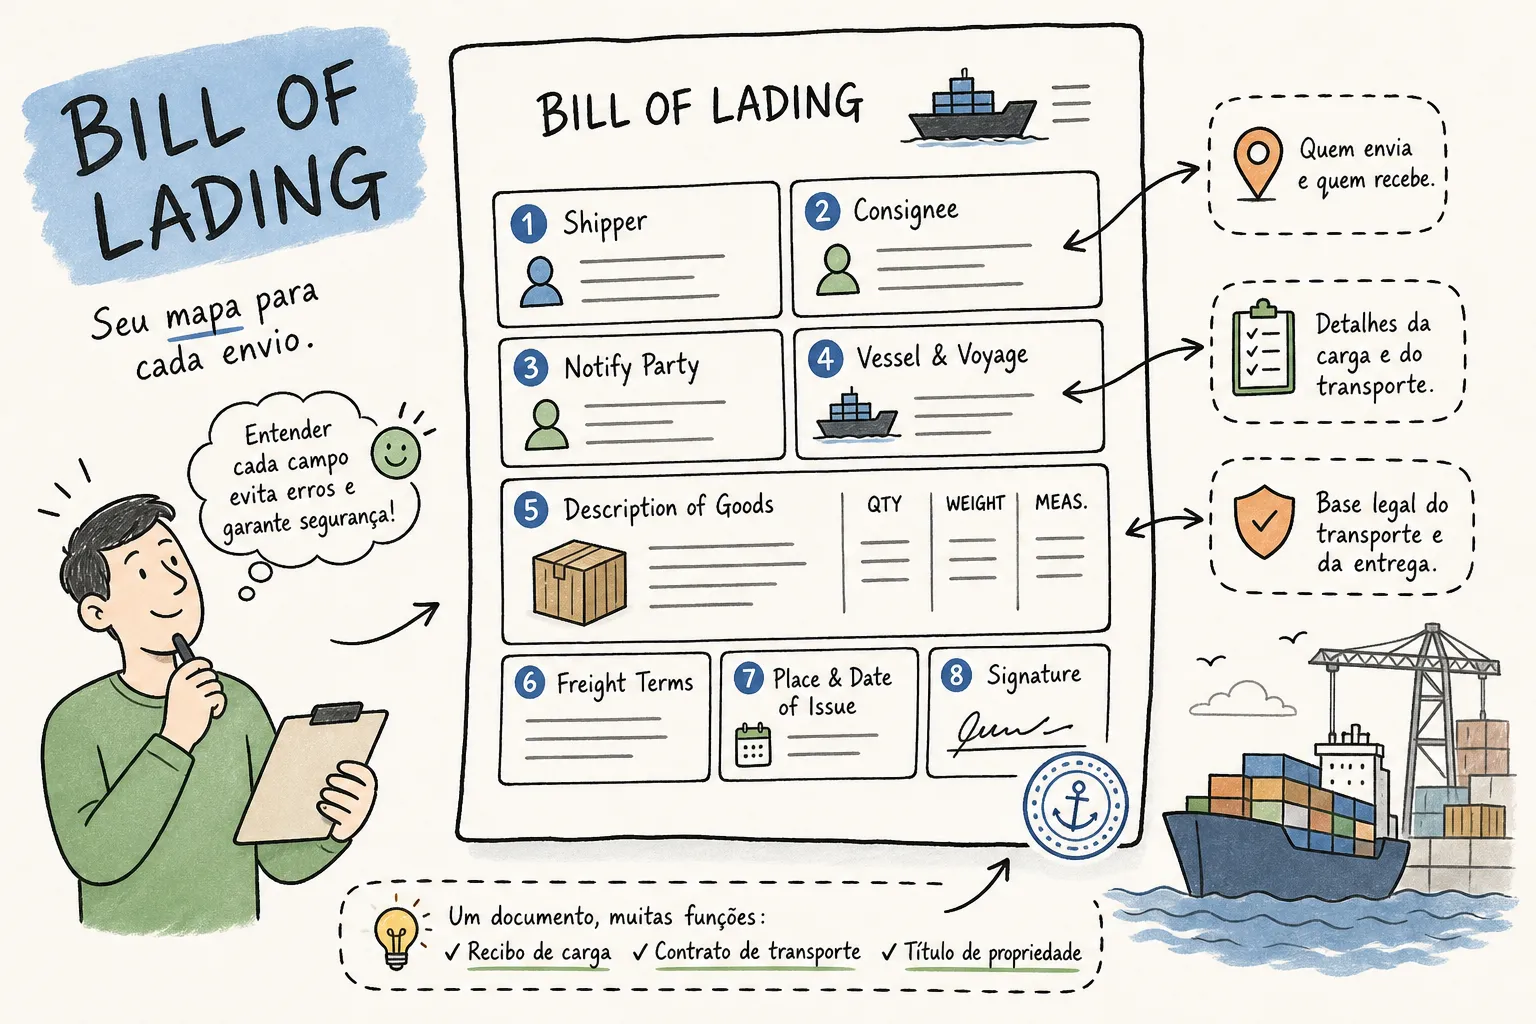 BILL OF
LADING
Seu mapa para
cada envio.
Entender
cada campo
evita erros e
garante segurança!
BILL OF LADING
1 Shipper
2 Consignee
3 Notify Party
4 Vessel & Voyage
5 Description of Goods
QTY
WEIGHT
MEAS.
6 Freight Terms
7 Place & Date
of Issue
8 Signature
Quem envia
e quem recebe.
Detalhes da
carga e do
transporte.
Base legal do
transporte e
da entrega.
Um documento, muitas funções:
✓ Recibo de carga ✓ Contrato de transporte ✓ Título de propriedade